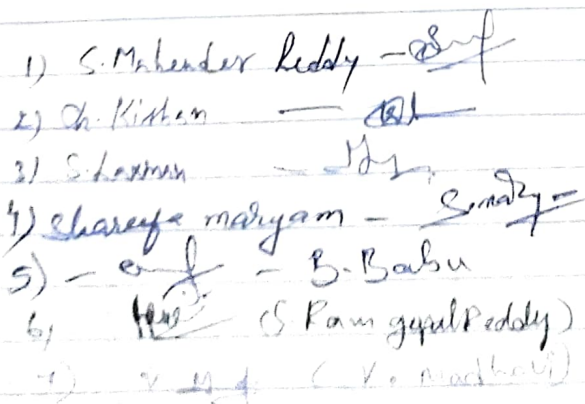 1) S. Mahender Reddy -
2) Ch. Kishan —
3) S. Laxman -
4) Shareefa maryam -
5) - - B. Babu
6) (S Ram gopal Reddy)
7) (V. Madhavi)